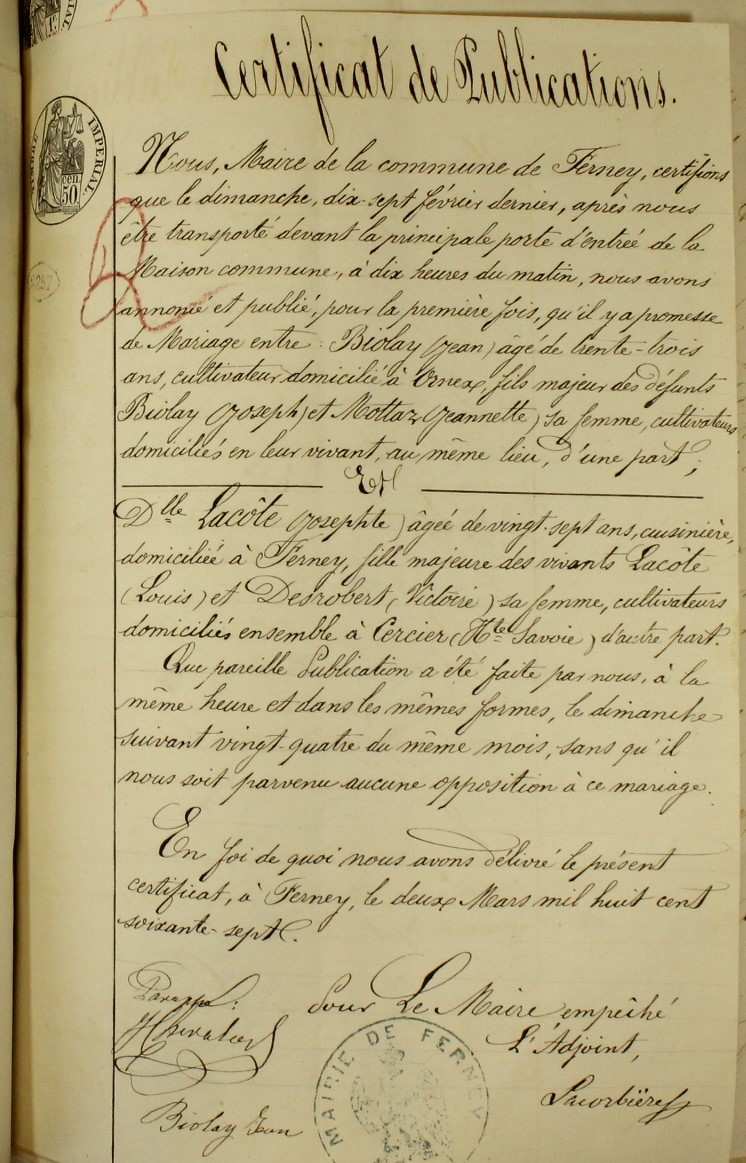 Certificat de Publications.
TIMBRE IMPERIAL
50 cen
Nous, Maire de la commune de Ferney, certifions
que le dimanche, dix-sept février dernier, après nous
être transporté devant la principale porte d'entrée de la
Maison commune, à dix heures du matin, nous avons
annoncé et publié, pour la première fois, qu'il y a promesse
de Mariage entre : Biolay (Jean) âgé de trente-trois
ans, cultivateur domicilié à Ornex, fils majeur des défunts
Biolay (Joseph) et Mottaz (Jeannette) sa femme, cultivateurs
domiciliés en leur vivant, au même lieu, d'une part ;
Et
Dlle Lacôte (Josephte) âgée de vingt-sept ans, cuisinière,
domiciliée à Ferney, fille majeure des vivants Lacôte
(Louis) et Desrobert (Victoire) sa femme, cultivateurs
domiciliés ensemble à Cercier (Hte Savoie) d'autre part.
Que pareille Publication a été faite par nous, à la
même heure et dans les mêmes formes, le dimanche
suivant vingt-quatre du même mois, sans qu'il
nous soit parvenu aucune opposition à ce mariage.
En foi de quoi nous avons délivré le présent
certificat, à Ferney, le deux Mars mil huit cent
soixante-sept.
Pour Le Maire empêché
L'Adjoint,
Biolay Jean
MAIRIE DE FERNEY